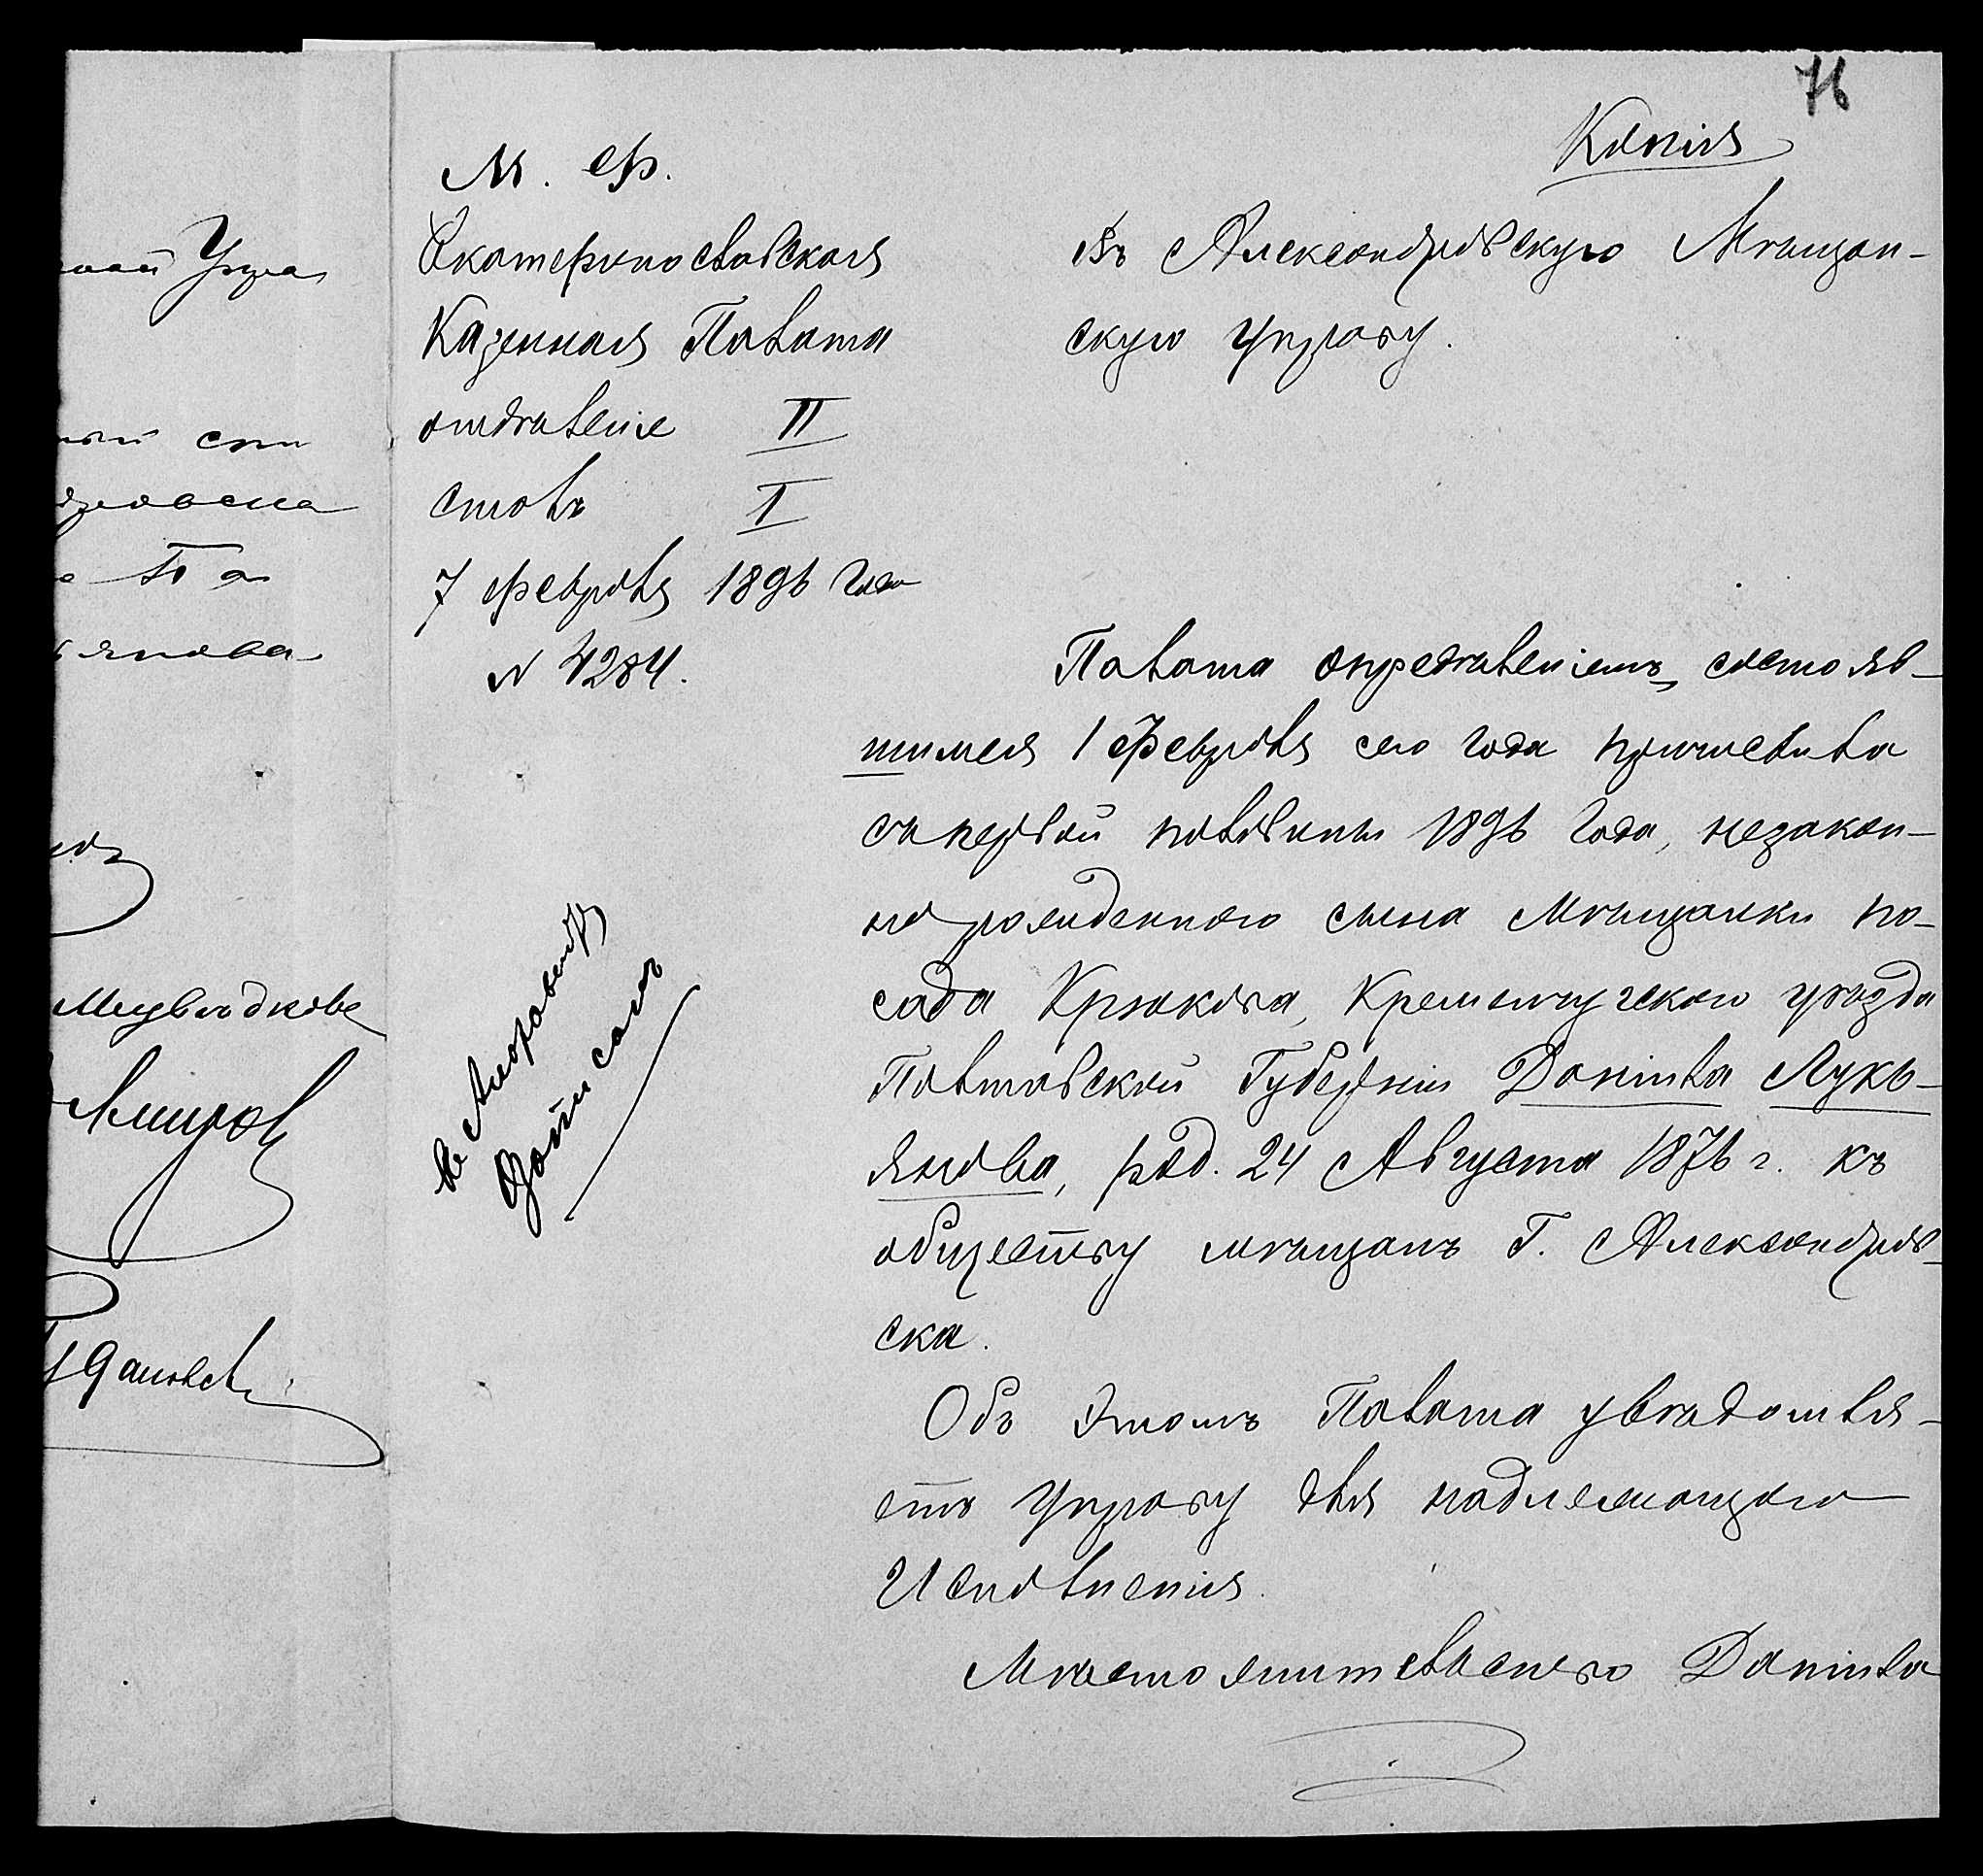 76
Копія
М. Ф.
Екатеринославская
Казенная Палата
отдѣленіе II
столъ I
7 Февраля 1896 года
№ 4284.
Въ Александровскую Мѣщан-
скую Управу.
Палата опредѣленіемъ, состояв-
шимся 1 Февраля сего года причислила
съ первой половины 1896 года, незакон-
но рожденнаго сына мѣщанки по-
сада Крюкова, Кременчугскаго уѣзда
Полтавской Губерніи Даніила Лукь-
янова, род. 24 Августа 1876 г. къ
обществу мѣщанъ г. Александров-
ска.
Объ этомъ Палата увѣдомля-
етъ Управу для надлежащаго
Исполненія.
Даніила